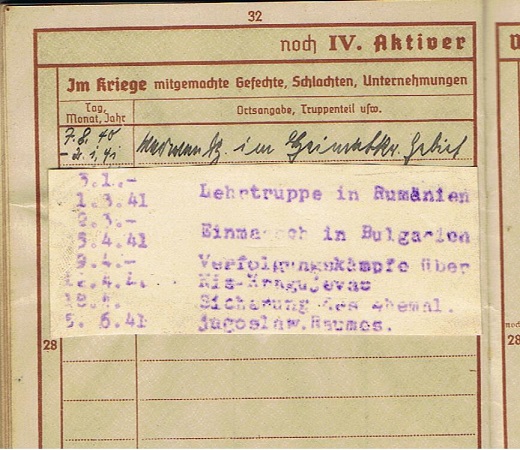 32
noch IV. Aktiver
Im Kriege mitgemachte Gefechte, Schlachten, Unternehmungen
Tag, Monat, Jahr
Ortsangabe, Truppenteil usw.
7.8.40
im Heimatkr. Gebiet
3.1.-
1.3.41 Lehrtruppe in Rumänien
2.3.-
8.4.41 Einmarsch in Bulgarien
9.4.- Verfolgungskämpfe über
Nis-Kragujevac
Sicherung des ehemal.
5. 6.41 jugoslaw.Raumes.
28
28